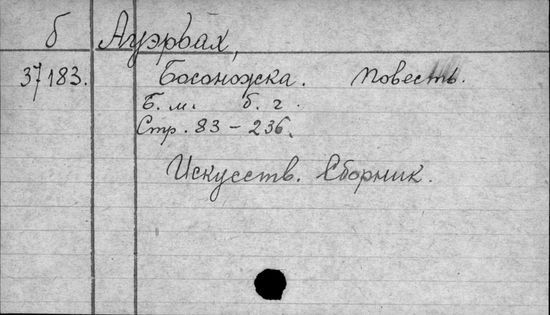 б Ауэрбах,
37183. Босоножка. Повесть.
Б. м. б. г.
Стр. 83-236.
Искусств. Сборник.